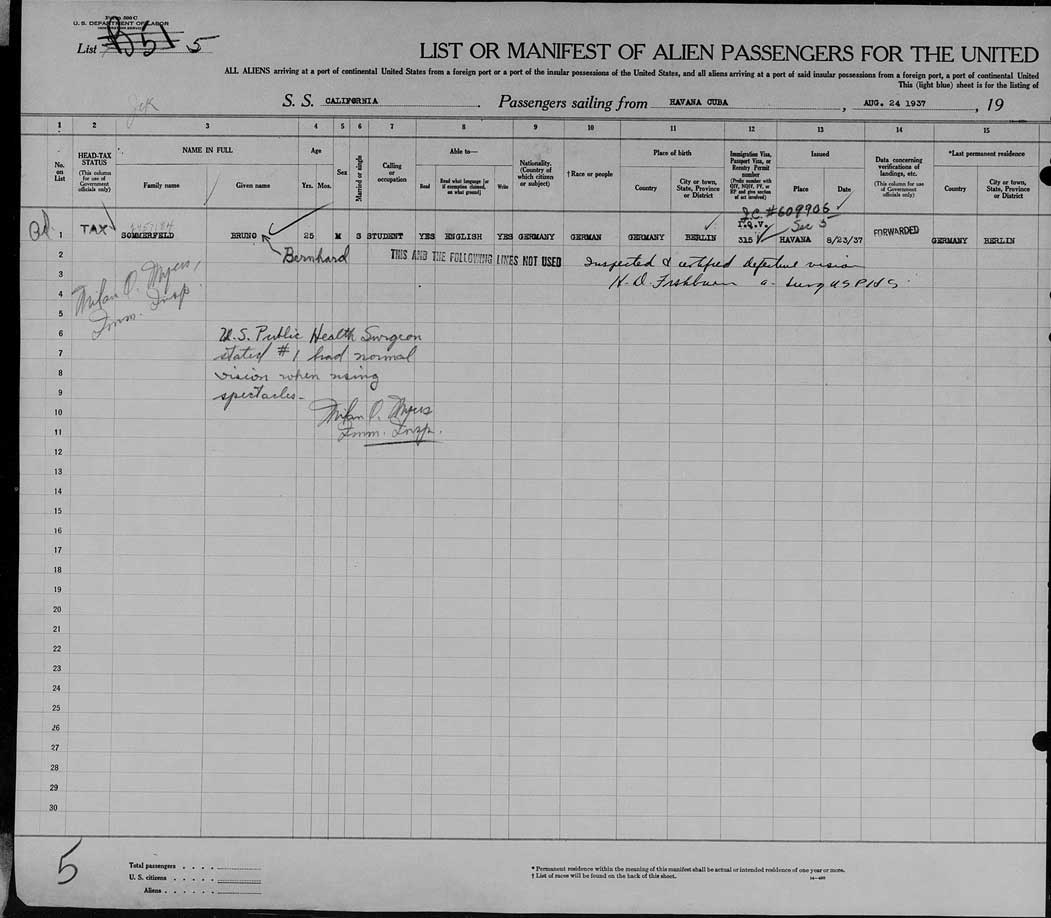 Form 500 C
U. S. DEPARTMENT OF LABOR
List 5
LIST OR MANIFEST OF ALIEN PASSENGERS FOR THE UNITED
ALL ALIENS arriving at a port of continental United States from a foreign port or a port of the insular possessions of the United States, and all aliens arriving at a port of said insular possessions from a foreign port, a port of continental United
This (light blue) sheet is for the listing of
S. S. CALIFORNIA. Passengers sailing from HAVANA CUBA, AUG. 24 1937, 19
1 2 3 4 5 6 7 8 9 10 11 12 13 14 15
No. on List
HEAD-TAX STATUS
(This column for use of Government officials only)
NAME IN FULL
Family name
Given name
Age
Yrs. Mos.
Sex
Married or single
Calling or occupation
Able to—
Read
Read what language [or if exemption claimed, on what ground]
Write
Nationality. (Country of which citizen or subject)
† Race or people
Place of birth
Country
City or town, State, Province or District
Immigration Visa, Passport Visa, or Reentry Permit number
(Prefix number with QIV, NQIV, PV, or RP and give section of act involved)
Issued
Place
Date
Data concerning verifications of landings, etc.
(This column for use of Government officials only)
*Last permanent residence
Country
City or town, State, Province or District
#609905
Sec 3
1 TAX SOMMERFELD BRUNO 25 M S STUDENT YES ENGLISH YES GERMANY GERMAN GERMANY BERLIN 315 HAVANA 8/23/37 FORWARDED GERMANY BERLIN
Bernhard
2 THIS AND THE FOLLOWING LINES NOT USED Inspected & certified defective vision
3 Milan O. Myers,
H. D. Fishburn a. Surg USPHS
4 Imm. Insp.
5
6 U.S. Public Health Surgeon
7 stated #1 had normal
8 vision when using
9 spectacles-
10 Milan O. Myers
11 Imm. Insp.
12
13
14
15
16
17
18
19
20
21
22
23
24
25
26
27
28
29
30
5
Total passengers
U. S. citizens
Aliens
* Permanent residence within the meaning of this manifest shall be actual or intended residence of one year or more.
† List of races will be found on the back of this sheet.